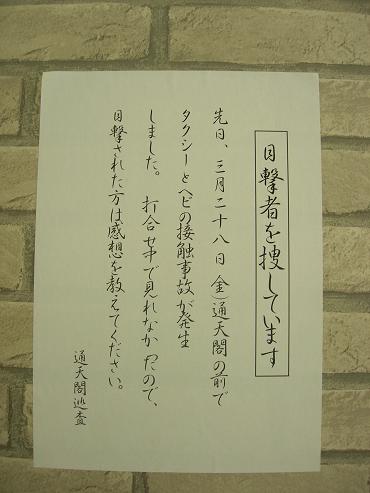 目撃者を捜しています
先日、三月二十八日(金)通天閣の前で
タクシーとヘビの接触事故が発生
しました。打合せ中で見れなかったので、
目撃された方は感想を教えてください。
通天閣巡査